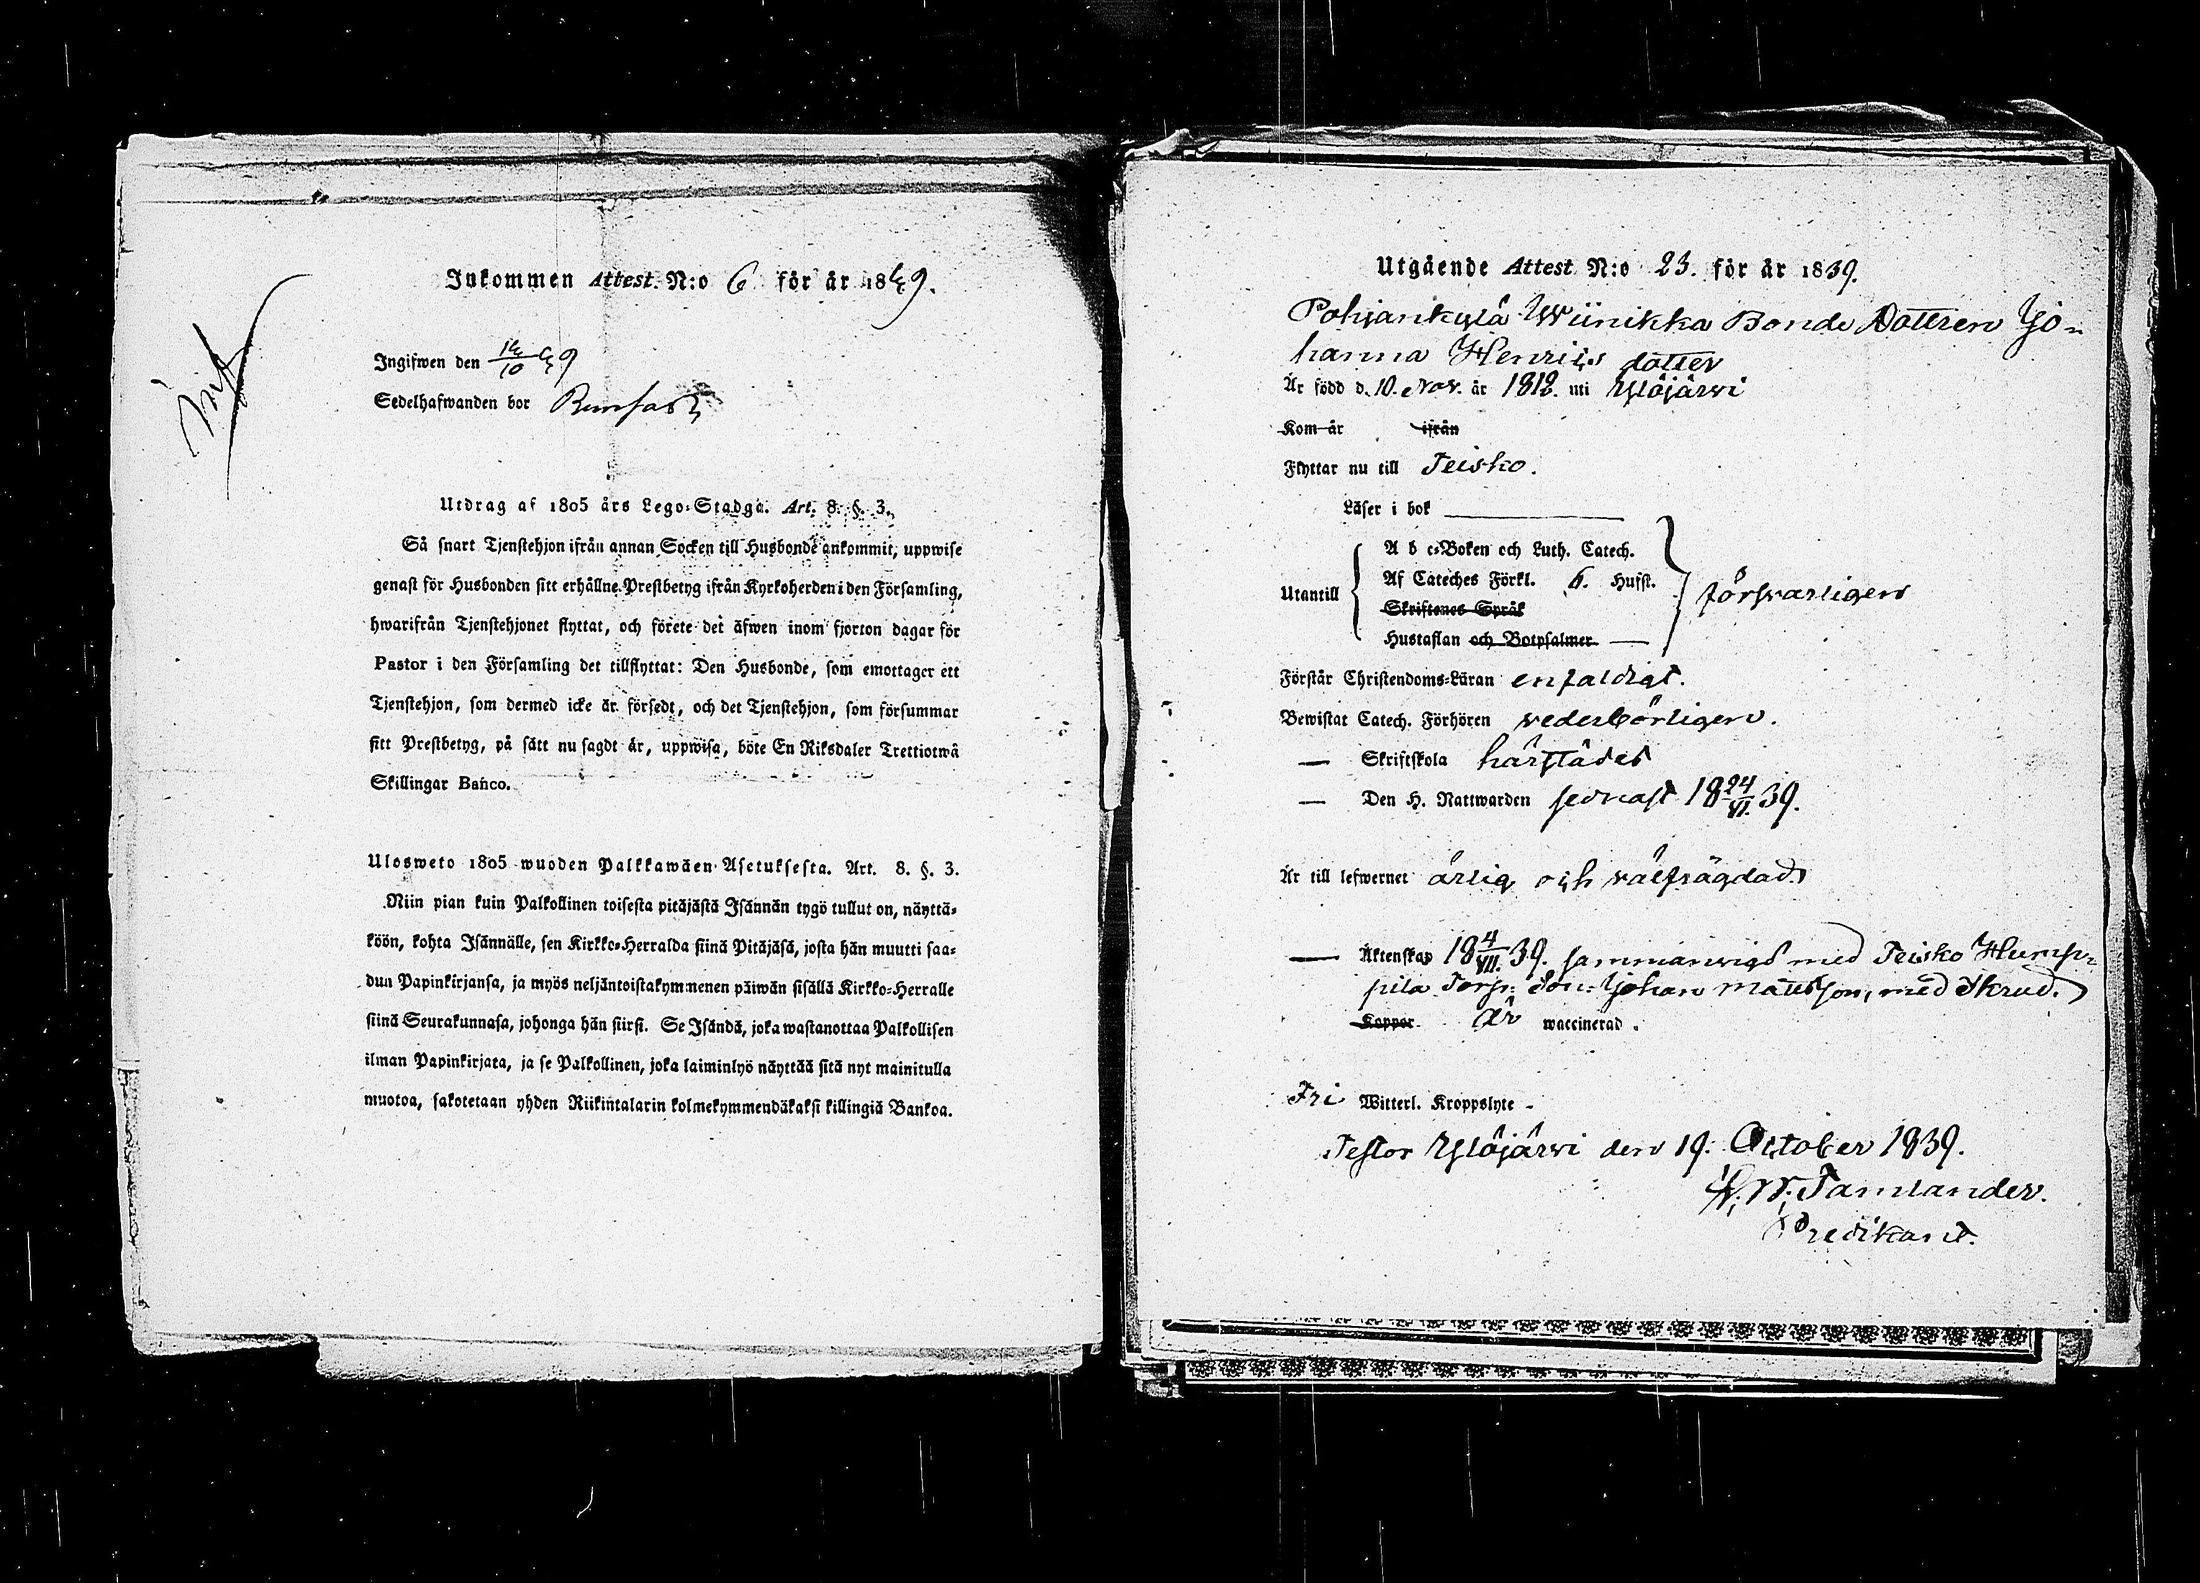 Inkommen Attest. N:o 6 för år 1849.
Ingifwen den 14/10 49
Sedelhafwanden bor
Utdrag af 1805 års Lego-Stadga. Art. 8. §. 3.
Så snart Tjenstehjon ifrån annan Socken till Husbonde ankommit, uppwise
genast för Husbonden sitt erhållne Prestbetyg ifrån Kyrkoherden i den Församling,
hwarifrån Tjenstehjonet flyttat, och förete det äfwen inom fjorton dagar för
Pastor i den Församling det tillflyttat: Den Husbonde, som emottager ett
Tjenstehjon, som dermed icke är försedt, och det Tjenstehjon, som försummar
sitt Prestbetyg, på sätt nu sagdt är, uppwisa, böte En Riksdaler Trettiotwå
Skillingar Banco.
Ulosweto 1805 wuoden Palkkawäen Asetuksesta. Art. 8. §. 3.
Niin pian kuin Palkollinen toisesta pitäjästä Isännän tygö tullut on, näyttä-
köön, kohta Isännälle, sen Kirkko-Herralda siinä Pitäjäsä, josta hän muutti saa-
dun Papinkirjansa, ja myös neljäntoistakymmenen päiwän sisällä Kirkko-Herralle
siinä Seurakunnasa, johonga hän siirsi. Se Isändä, joka wastanottaa Palkollisen
ilman Papinkirjata, ja se Palkollinen, joka laiminlyö näyttää sitä nyt mainitulla
muotoa, sakotetaan yhden Riikintalarin kolmekymmendäkaksi killingiä Bankoa.
Utgående Attest N:o 23. för år 1839.
Pohjankylä Wiinikka Bonde Dottren Jo-
hanna Henrics dotter
Är född d. 10. Nov. år 1812. uti Ylöjärwi
Kom år ifrån
Flyttar nu till Teisko.
Läser i bok
Utantill
A b c-Boken och Luth. Catech.
Af Cateches Förkl. 6. Hufst.
Skriftenes Språk
Hustaflan och Botpsalmer
försvarligen
Förstår Christendoms-Läran enfaldigt.
Bewistat Catech. Förhören vederbörligen.
— Skriftskola härstädes
— Den H. Nattwarden sednast 18 24/VI. 39.
Är till lefwernet ärlig och välfrägdad
— Äktenskap 18 4/VII. 39. sammanvigd med Teisko Hump-
pila Torp. Son. Johan Mattsson, med Skrud.
Koppor är waccinerad.
Fri Witterl. Kroppslyte.
Testor Ylöjärwi den 19. October 1839.
Tamlander.
Predikant.